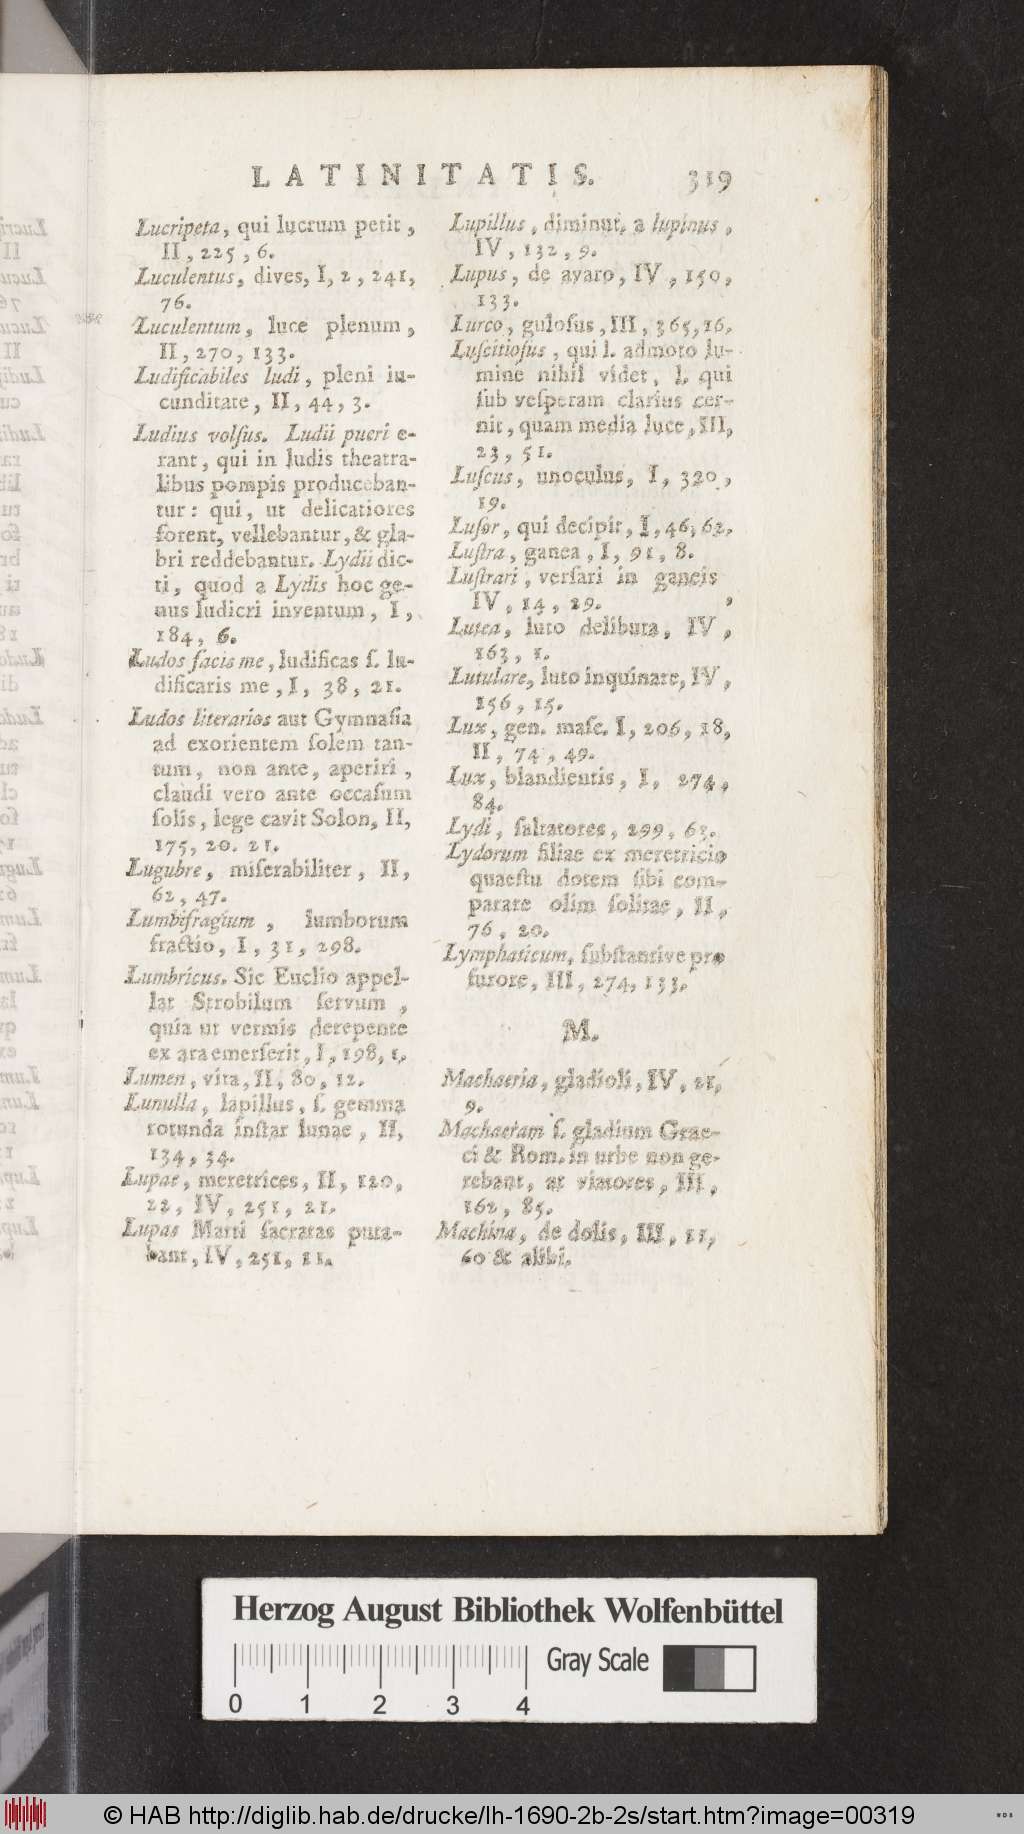 LATINITATIS. 319
Lucripeta, qui lucrum petit,
II, 225, 6.
Luculentus, dives, I, 2, 241,
76.
Luculentum, luce plenum,
II, 270, 133.
Ludificabiles ludi, pleni iu-
cunditate, II, 44, 3.
Ludius volſus. Ludii pueri e-
rant, qui in ludis theatra-
libus pompis produceban-
tur: qui, ut delicatiores
forent, vellebantur, & gla-
bri reddebantur. Lydii dic-
ti, quod a Lydis hoc ge-
nus ludicri inventum, I,
184, 6.
Ludos facis me, ludificas ſ. lu-
dificaris me, I, 38, 21.
Ludos literarios aut Gymnaſia
ad exorientem ſolem tan-
tum, non ante, aperiri,
claudi vero ante occaſum
ſolis, lege cavit Solon, II,
175, 20. 21.
Lugubre, miſerabiliter, II,
62, 47.
Lumbifragium, lumborum
fractio, I, 31, 298.
Lumbricus. Sic Euclio appel-
lat Strobilum ſervum,
quia ut vermis derepente
ex ara emerſerit, I, 198, 1.
Lumen, vita, II, 80, 12.
Lunulla, lapillus, ſ. gemma
rotunda inſtar lunae, II,
134, 34.
Lupae, meretrices, II, 120,
22, IV, 251, 21.
Lupas Marti ſacratas puta-
bant, IV, 251, 21.
Lupillus, diminut. a lupinus,
IV, 132, 9.
Lupus, de avaro, IV, 150,
133.
Lurco, guloſus, III, 365, 16.
Luſcitioſus, qui l. admoto lu-
mine nihil videt, l. qui
ſub veſperam clarius cer-
nit, quam media luce, III,
23, 51.
Luſcus, unoculus, I, 320,
19.
Luſor, qui decipit, I, 46, 62.
Luſtra, ganea, I, 91, 8.
Luſtrari, verſari in ganeis
IV, 14, 29. ,
Lutea, luto delibuta, IV,
163, 1.
Lutulare, luto inquinare, IV,
156, 15.
Lux, gen. maſc. I, 206, 18,
II, 74, 49.
Lux, blandientis, I, 274,
84.
Lydi, ſaltatores, 299, 63.
Lydorum filiae ex meretricio
quaeſtu dotem ſibi com-
parare olim ſolitae, II,
76, 20.
Lymphaticum, ſubſtantive pro
furore, III, 274, 133.
M.
Machaeria, gladioli, IV, 21,
9.
Machaeram ſ. gladium Grae-
ci & Rom. in urbe non ge-
rebant, at viatores, III,
162, 85.
Machina, de dolis, III, 11,
60 & alibi.
Herzog August Bibliothek Wolfenbüttel
0 1 2 3 4
Gray Scale
© HAB http://diglib.hab.de/drucke/lh-1690-2b-2s/start.htm?image=00319